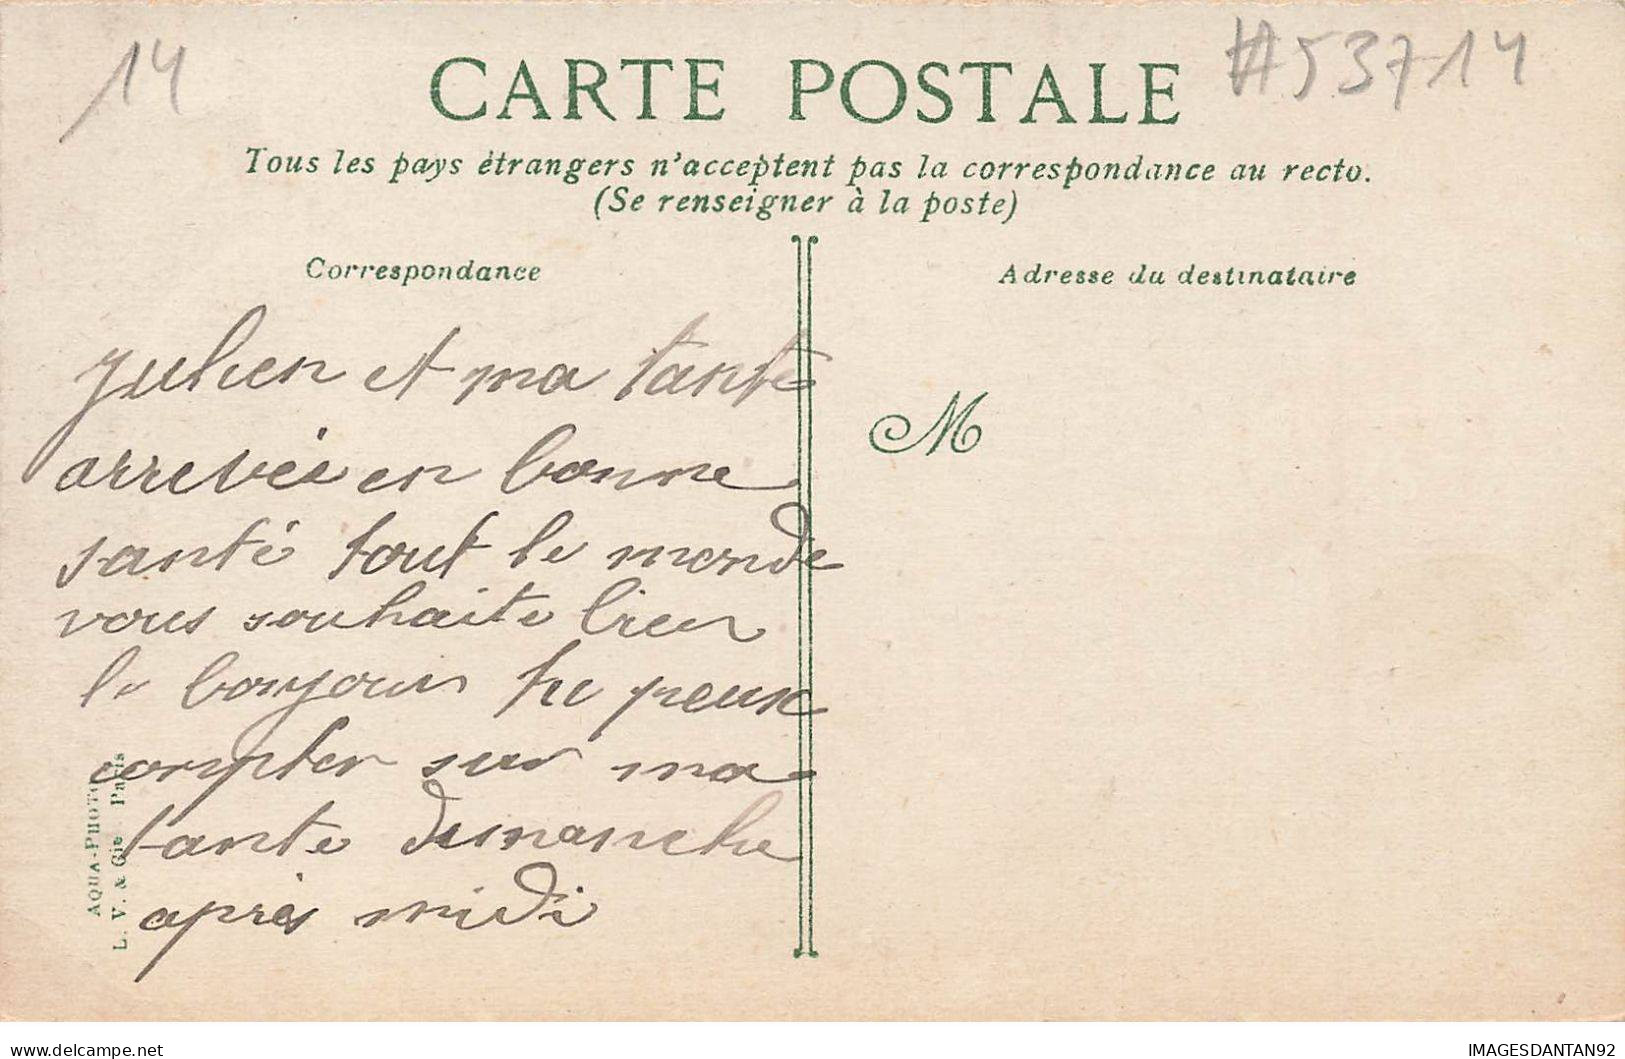 14
#53714
CARTE POSTALE
Tous les pays étrangers n'acceptent pas la correspondance au recto.
(Se renseigner à la poste)
Correspondance
Adresse du destinataire
Julien et ma tante
arrevée en bonne
santé tout le monde
vous souhaite bien
le bonjour tu peux
compter sur ma
tante dimanche
après midi
M
AQUA-PHOTO
L. V. & Cie Paris
IMAGESDANTAN92
delcampe.net